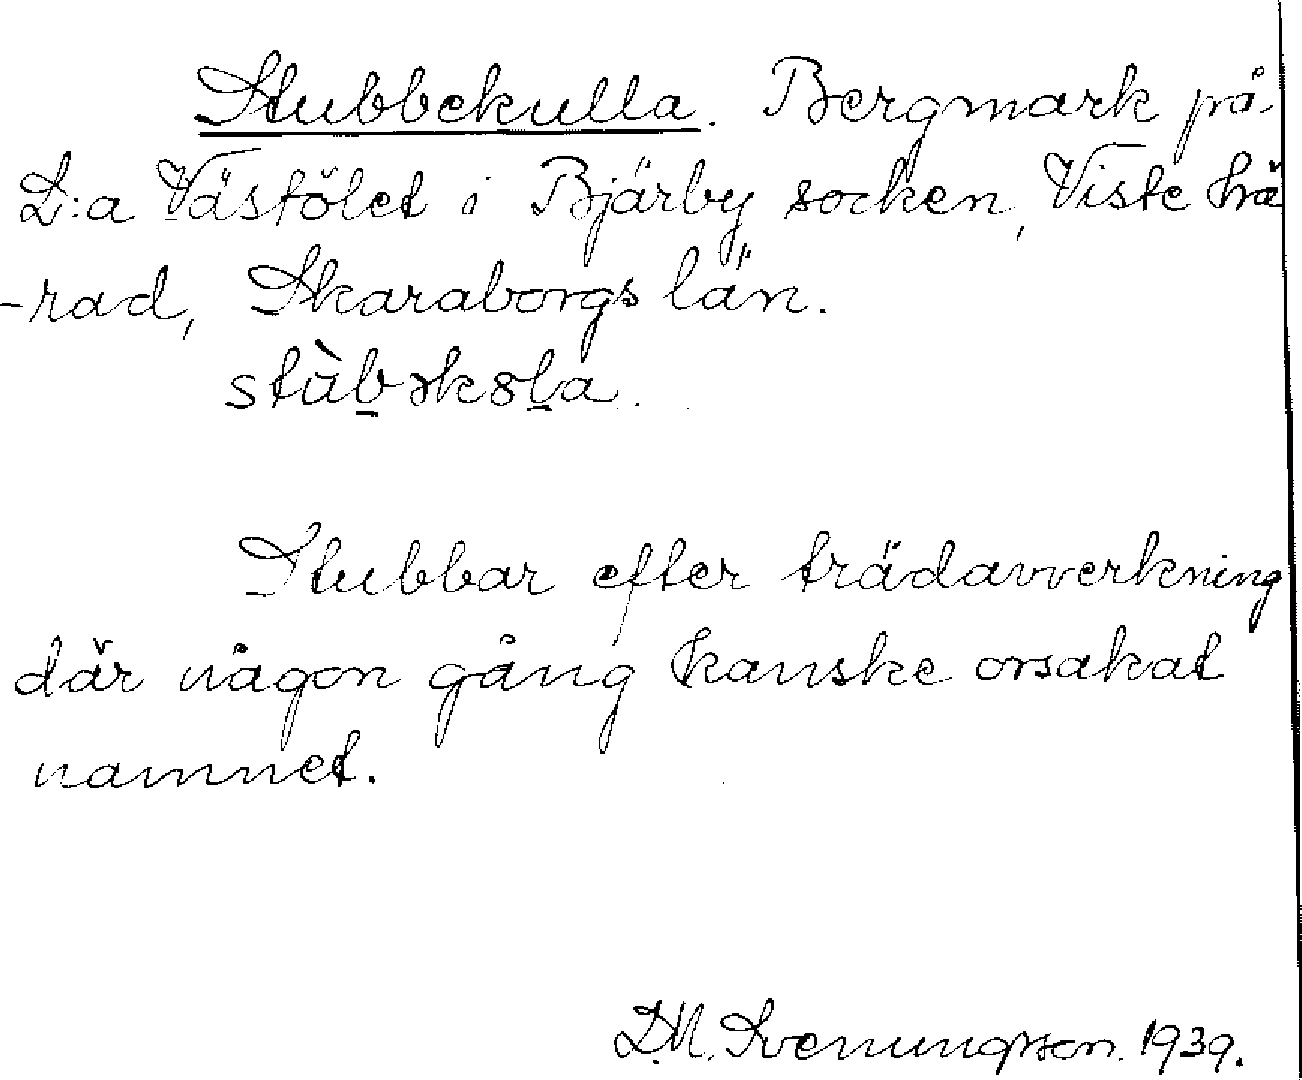 Stubbekulla. Bergmark på
L:a Västölet i Bjärby socken, Viste hä
-rad, Skaraborgs län.
stùb̲əkȣl̲a.
Stubbar efter trädavverkning
där någon gång kanske orsakat
namnet.
D.M. Svenungsson. 1939.